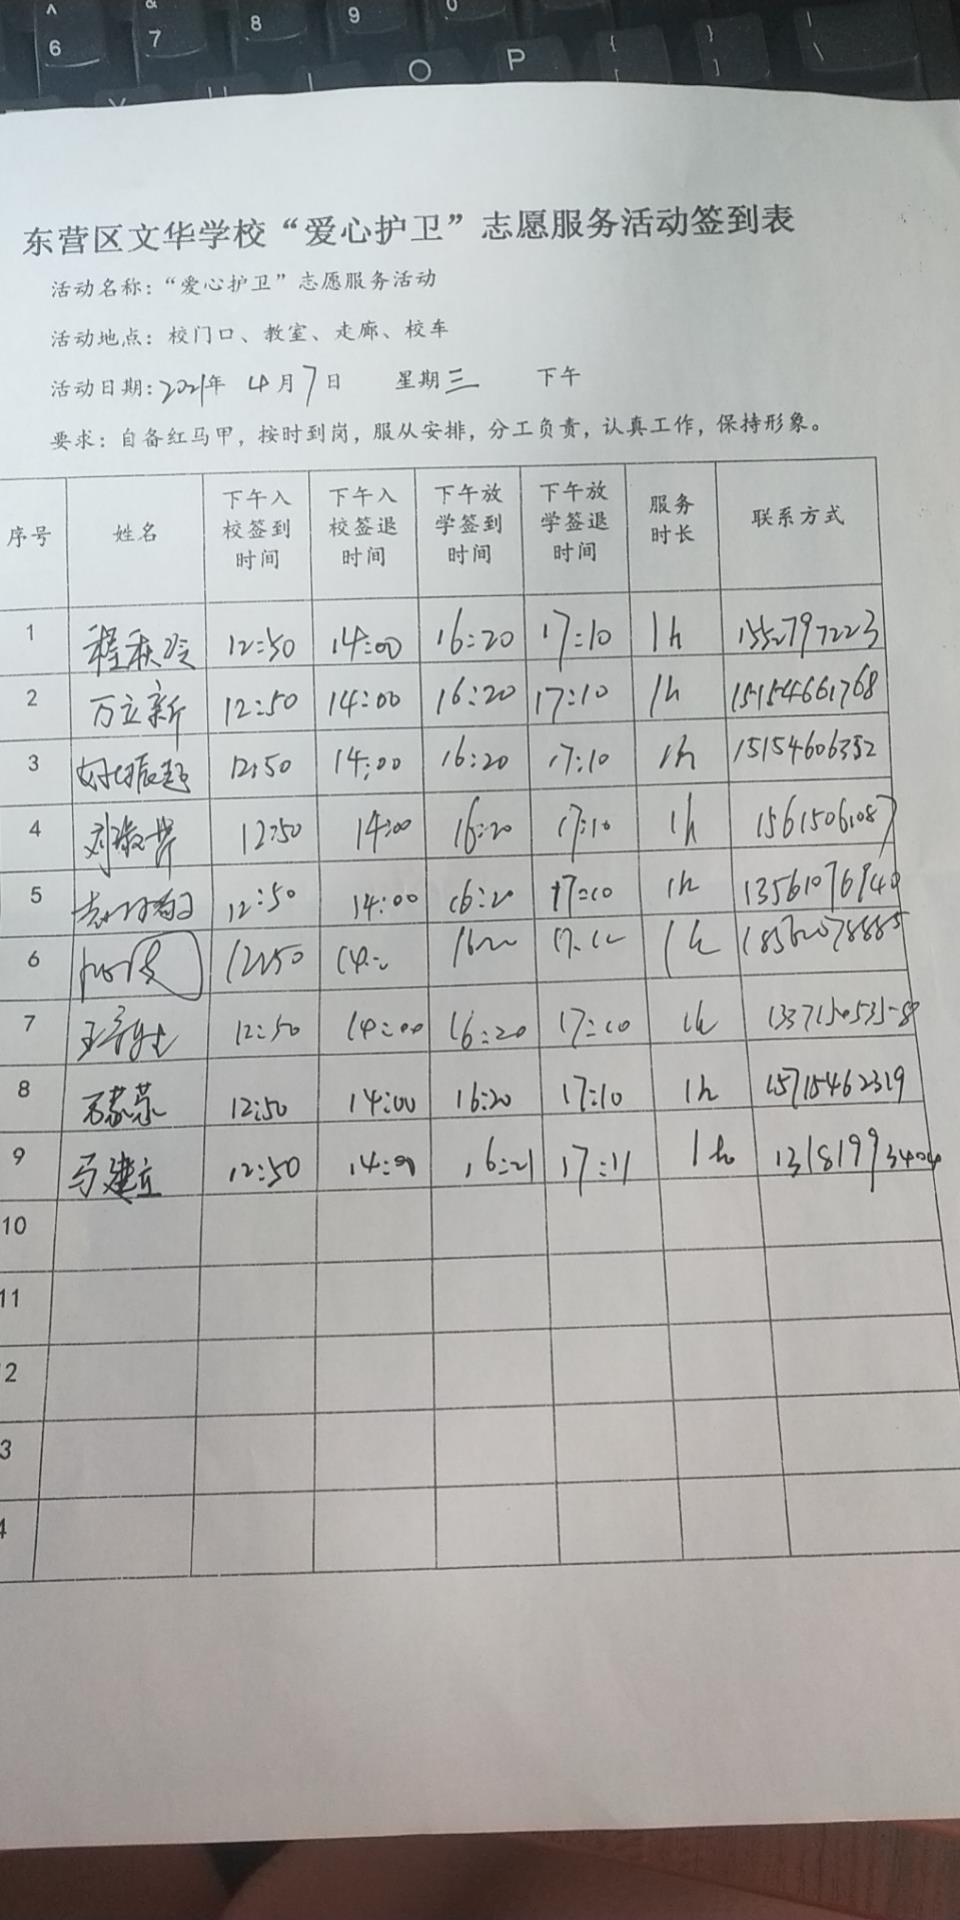 ^ & 8 9 0
6 7
Y U I O P { [ } ] | \
东营区文华学校“爱心护卫”志愿服务活动签到表
活动名称：“爱心护卫”志愿服务活动
活动地点：校门口、教室、走廊、校车
活动日期：2021年 4月7日 星期三 下午
要求：自备红马甲，按时到岗，服从安排，分工负责，认真工作，保持形象。
序号 姓名 下午入校签到时间 下午入校签退时间 下午放学签到时间 下午放学签退时间 服务时长 联系方式
1 程秋玲 12:50 14:00 16:20 17:10 1h 1552797223
2 万立新 12:50 14:00 16:20 17:10 1h 15154661768
3 12:50 14:00 16:20 17:10 1h 15154606352
4 12:50 14:00 16:20 17:10 1h 15615061087
5 12:50 14:00 16:20 17:10 1h 13561076940
6 12:50 1h
7 12:50 14:00 16:20 17:10 1h
8 12:50 14:00 16:20 17:10 1h 15715462319
9 马建立 12:50 16:21 17:11 1h 13181993404
10
11
2
3
4